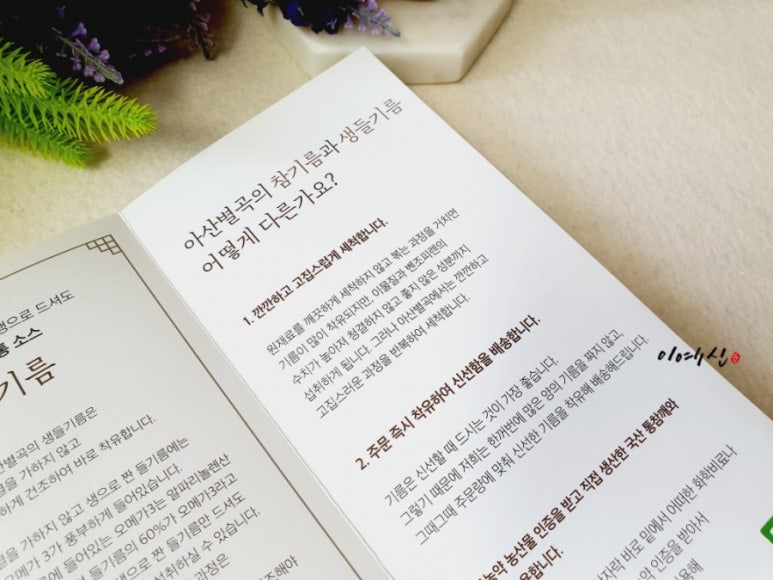 생으로 드셔도
통 소스
기름
산별곡의 생들기름은
을 가하지 않고
하게 건조하여 바로 착유합니다.
을 가하지 않고 생으로 짠 들기름에는
메가 3가 풍부하게 들어있습니다.
에 들어있는 오메가3는 알파리놀렌산
들기름의 60%가 오메가3라고
으로 짠 들기름만 드셔도
섭취하실 수 있습니다.
과정은
조해야
아산별곡의 참기름과 생들기름
어떻게 다른가요?
1. 깐깐하고 고집스럽게 세척합니다.
원재료를 깨끗하게 세척하지 않고 볶는 과정을 거치면
기름이 많이 착유되지만, 이물질과 벤조피렌의
수치가 높아져 청결하지 않고 좋지 않은 성분까지
섭취하게 됩니다. 그러나 아산별곡에서는 깐깐하고
고집스러운 과정을 반복하여 세척합니다.
2. 주문 즉시 착유하여 신선함을 배송합니다.
기름은 신선할 때 드시는 것이 가장 좋습니다.
그렇기 때문에 저희는 한꺼번에 많은 양의 기름을 짜지 않고,
그때그때 주문량에 맞춰 신선한 기름을 착유해 배송해드립니다.
농약 농산물 인증을 받고 직접 생산한 국산 통참깨와
합니다.
자락 바로 밑에서 어떠한 화학비료나
인증을 받아서
이여신